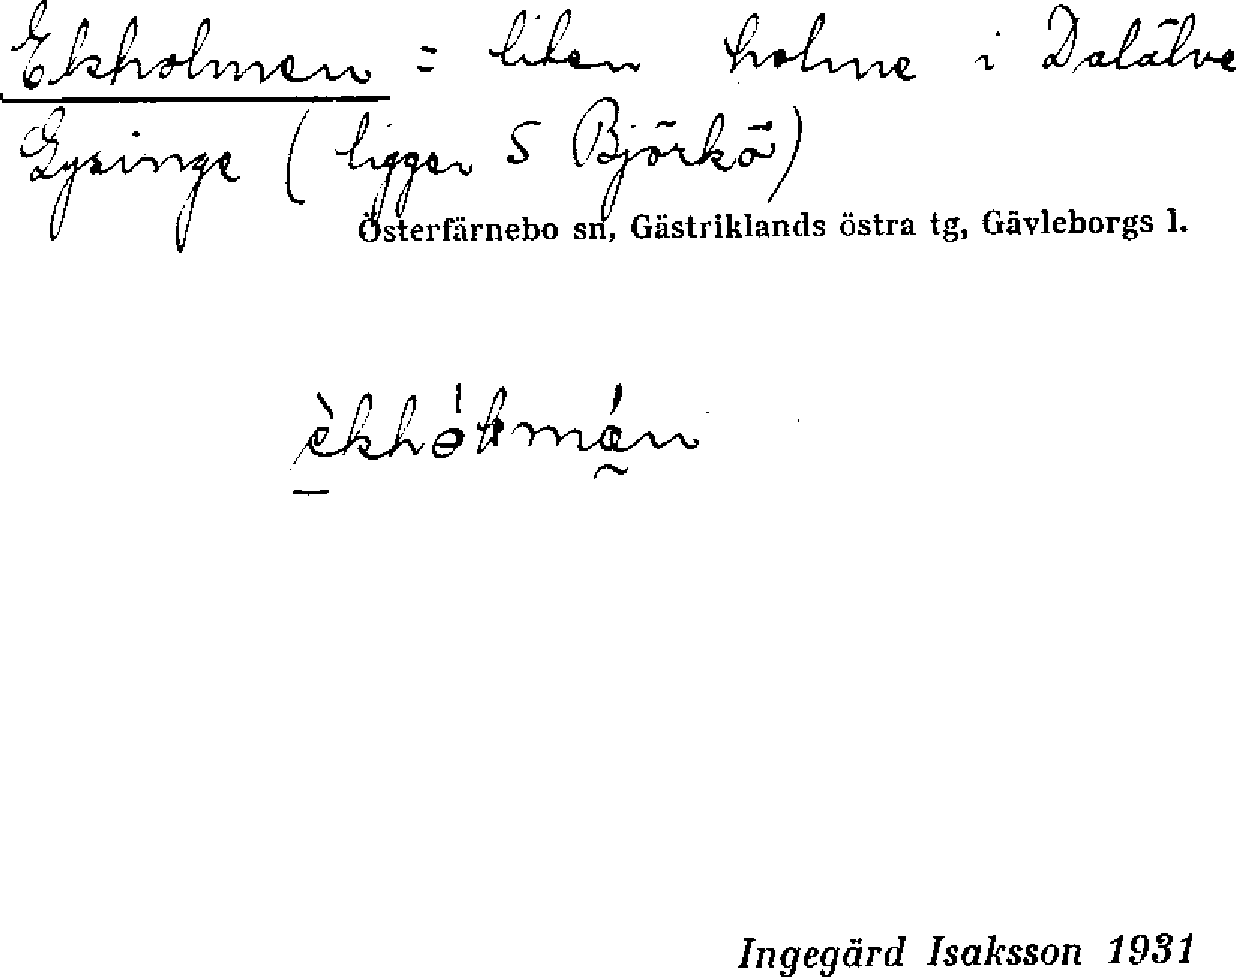 Ekholmen = liten holme i Dalälve
Gysinge (ligger S Björkö)
Österfärnebo sn, Gästriklands östra tg, Gävleborgs l.
Ingegärd Isaksson 1931